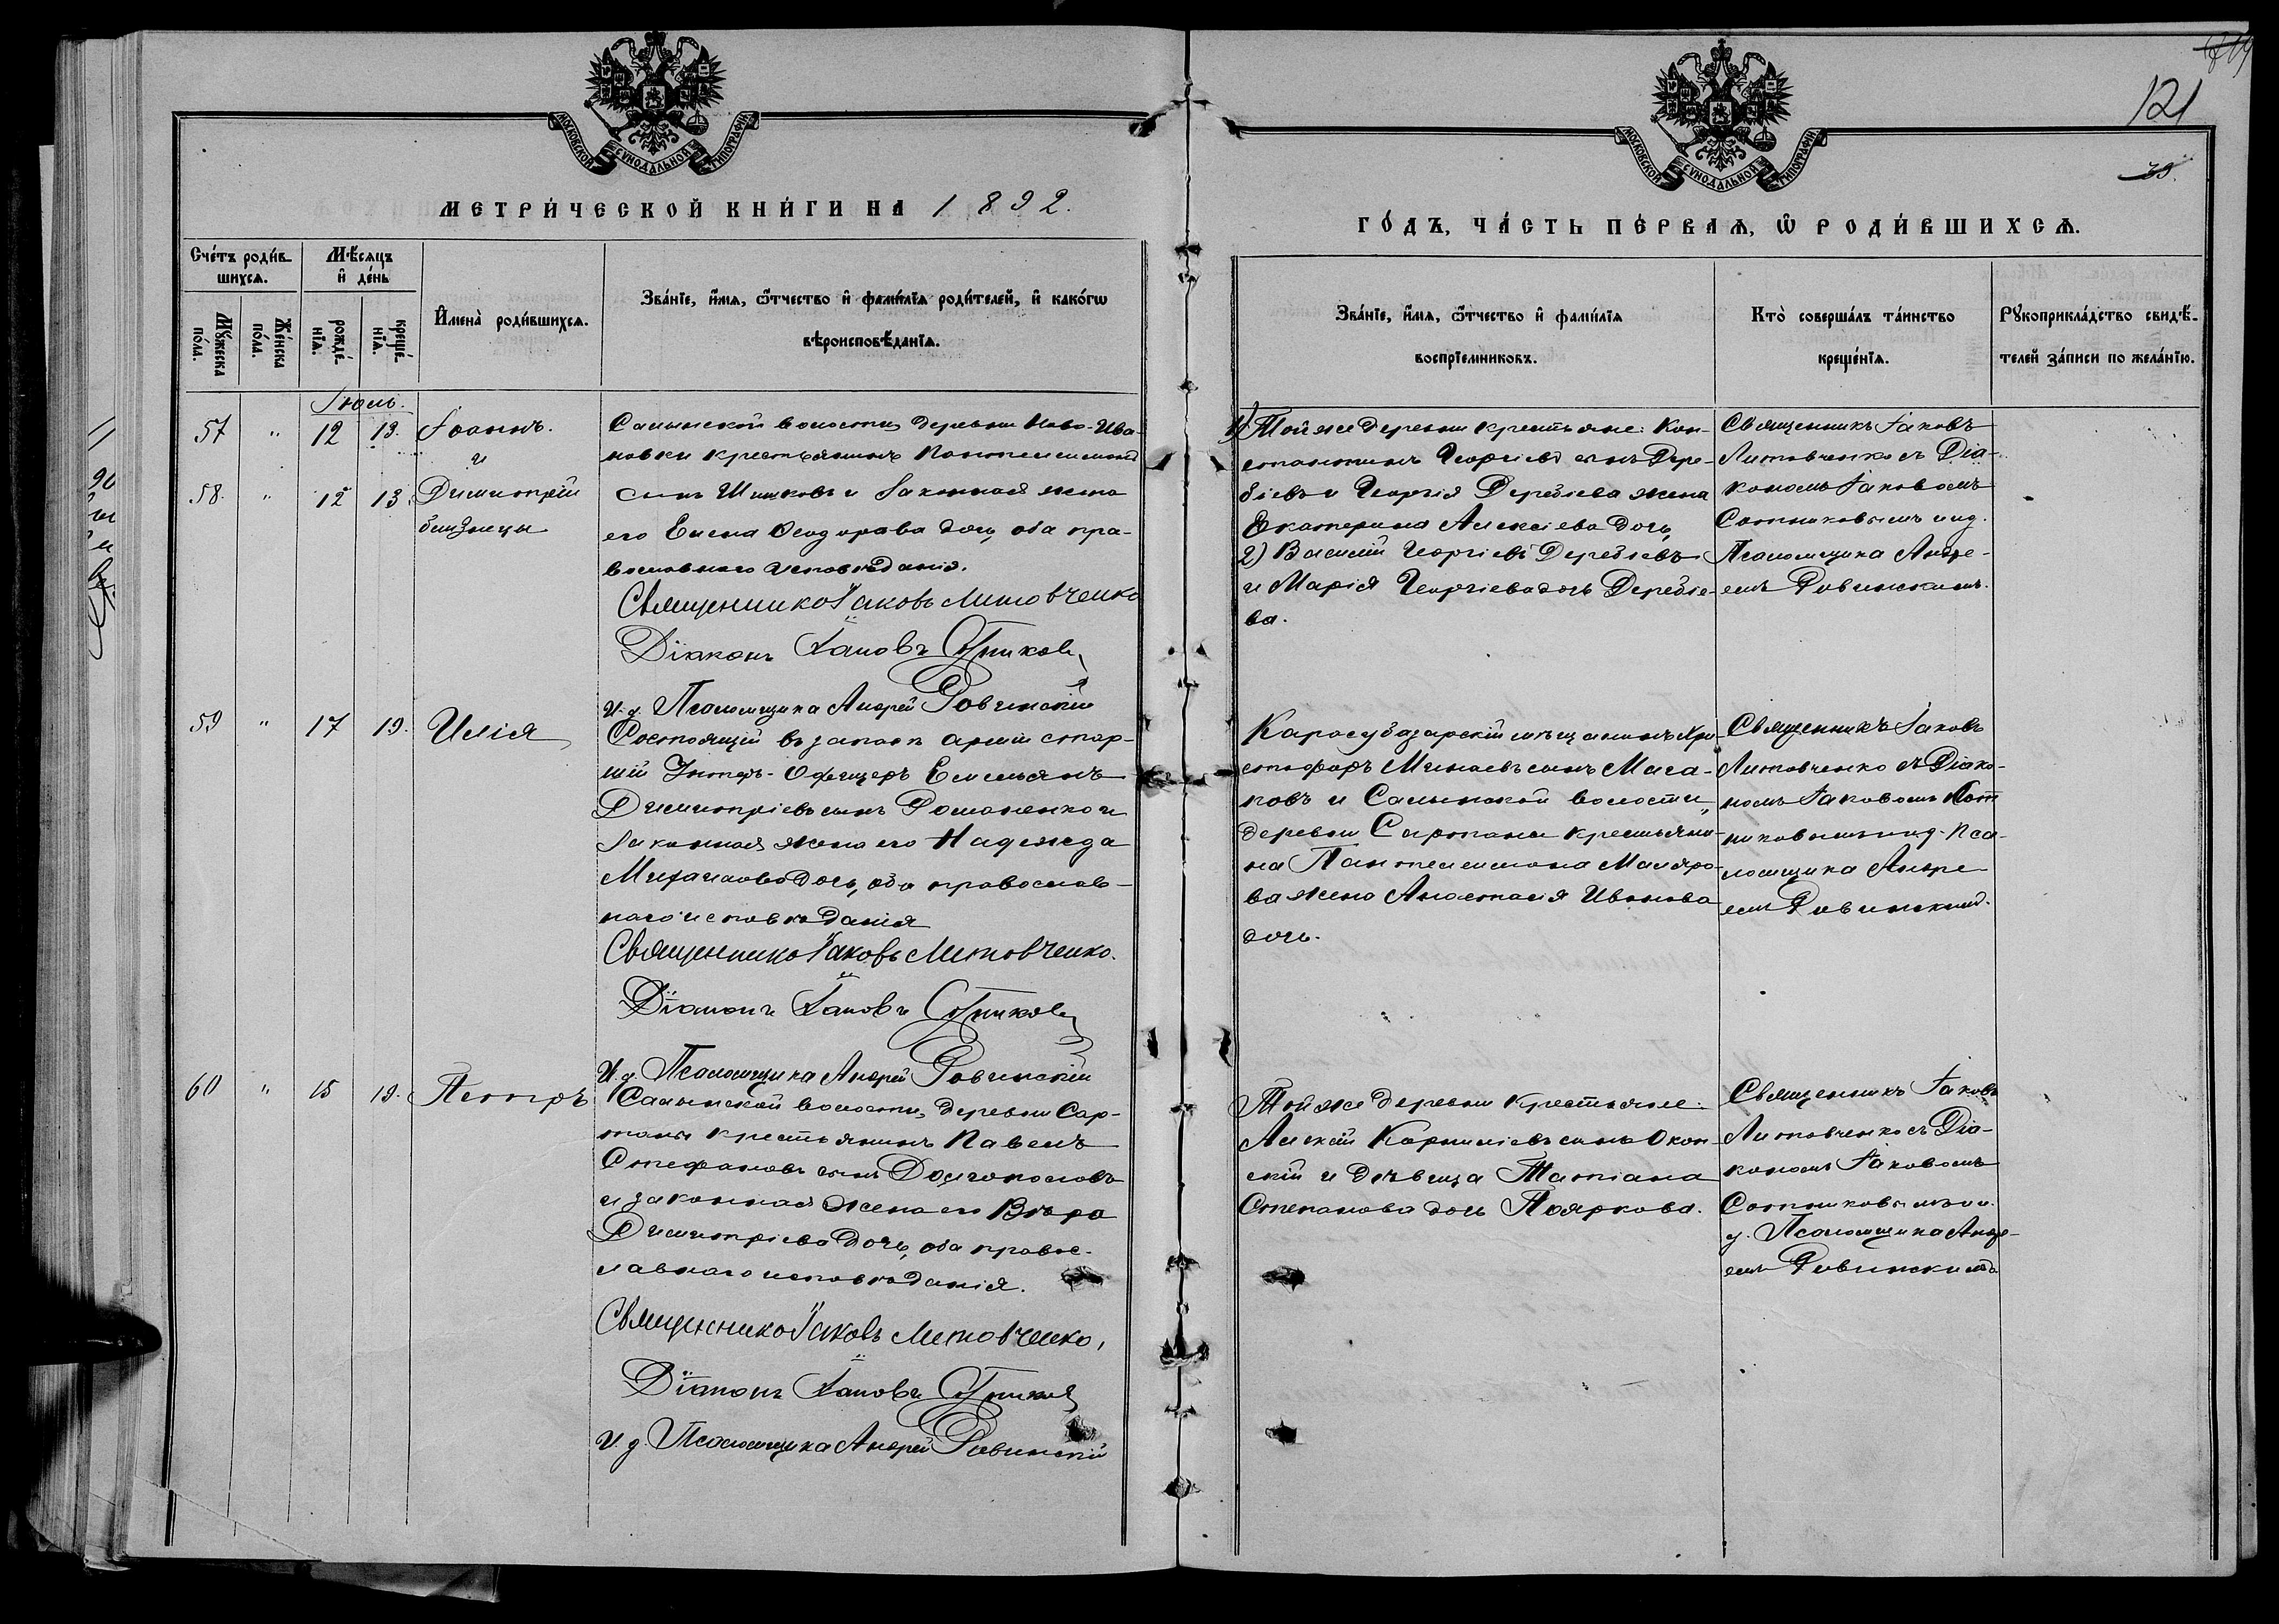 МОСКОВСКОЙ СѴНОДАЛЬНОЙ ТИПОГРАФІИ
МЕТРИ́ЧЕСКОЙ КНИ́ГИ НА 1892.
Сче́тъ роди́в-
шихсѧ.
Мѣ́сѧцъ
и҆ де́нь
Мꙋ́жеска
по́ла.
Же́нска
по́ла.
рожде́-
нїѧ.
креще́-
нїѧ.
И҆мена̀ роди́вшихсѧ.
Зва́нїе, и҆́мѧ, ѻ҆́тчество и҆ фами́лїѧ роди́телей, и҆ како́гѡ
вѣроисповѣ́данїѧ.
Іюль.
57 " 12 13. Іоаннъ.
и
58. " 12 13. Димитрій
близнецы
Салынской волости, деревни Ново-Ива-
новки крестьянинъ Пантелеимонъ
сынъ Шишковъ и законная жена
его Елена Ѳеодорова дочь, оба пра-
вославнаго исповѣданія.
Священникъ Іаковъ Литовченко
Діаконъ Іаковъ Сотников
И. д. Псаломщика Андрей Ровинскій
59 " 17 19. Илія
Состоящій въ запасѣ арміи стар-
шій Унтеръ-Офицеръ Емельянъ
Димитріевъ сынъ Романенко и
законная жена его Надежда
Михаилова дочь, оба православ-
наго исповѣданія
Священникъ Іаковъ Литовченко.
Діаконъ Іаковъ Сотников
И. д. Псаломщика Андрей Ровинскій
60 " 15 19. Петръ
Салынской волости, деревни Сар-
таны крестьянинъ Павелъ
Стефановъ сынъ Долгополовъ
и законная жена его Вѣра
Димитріева дочь, оба правос-
лавнаго исповѣданія.
Священникъ Іаковъ Литовченко,
Діаконъ Іаковъ Сотников
И. д. Псаломщика Андрей Ровинскій
121
39.
МОСКОВСКОЙ СѴНОДАЛЬНОЙ ТИПОГРАФІИ
ГО́ДЪ, ЧА́СТЬ ПЕ́РВАѦ, Ѡ҆ РОДИ́ВШИХСѦ.
Зва́нїе, и҆́мѧ, ѻ҆́тчество и҆ фами́лїѧ
воспрїе́мниковъ.
Кто̀ соверша́лъ та́инство
креще́нїѧ.
Рꙋкоприкла́дство свидѣ́-
телей за́писи по жела́нїю.
1) Той же деревни крестьяне: Кон-
стантинъ Георгіевъ сынъ Дере-
біевъ и Георгія Деребіева жена
Екатерина Алексіева дочь,
2) Василій Георгіевъ Деребіевъ
и Марія Георгіева дочь Деребіе-
ва.
Священникъ Іаковъ
Литовченко съ Діа-
кономъ Іаковомъ
Сотниковымъ и и. д.
Псаломщика Андре-
емъ Ровинскимъ.
Карасубазарскій мѣщанинъ Хри-
стофоръ Минаевъ сынъ Маса-
ковъ и Салынской волости,
деревни Сартаны крестьяни-
на Пантелеимона Маляро-
ва жена Анастасія Иванова
дочь.
Священникъ Іаковъ
Литовченко съ Діако-
номъ Іаковомъ Сот
никовымъ и и. д. Пса-
ломщика Андре
емъ Ровинскимъ.
Той же деревни крестьяне:
Алексій Корниліевъ сынъ Окон-
скій и дѣвица Татіана
Степанова дочь Пояркова.
Священникъ Іаковъ
Литовченко съ Діа-
кономъ Іаковомъ
Сотниковымъ и и.
д. Псаломщика Андре-
емъ Ровинскимъ